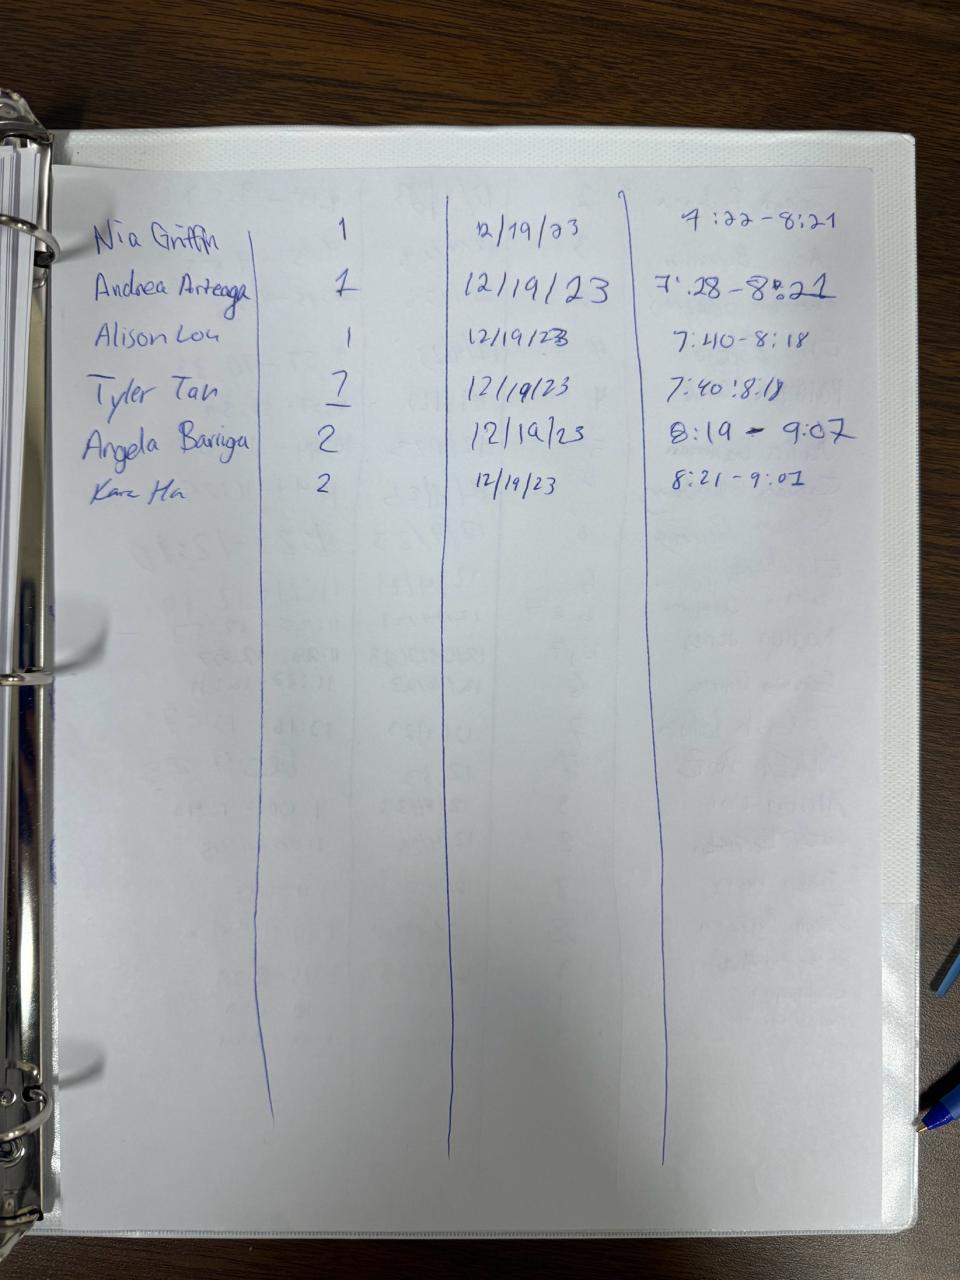 Nia Griffin 1 12/19/23 7:22-8:21
Andrea Arteaga 1 12/19/23 7:28-8:21
Alison Lou 1 12/19/23 7:40-8:18
Tyler Tan 1 12/19/23 7:40:8:18
Angela Barriga 2 12/19/23 8:19-9:07
Ha 2 12/19/23 8:21-9:01